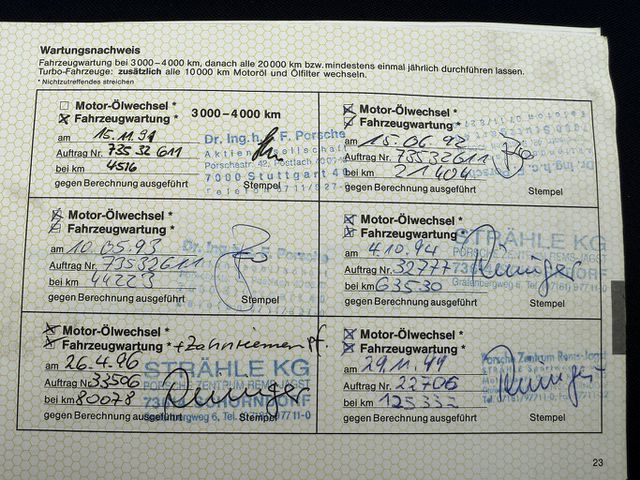 Wartungsnachweis
Fahrzeugwartung bei 3000–4000 km, danach alle 20 000 km bzw. mindestens einmal jährlich durchführen lassen.
Turbo-Fahrzeuge: zusätzlich alle 10 000 km Motoröl und Ölfilter wechseln.
* Nichtzutreffendes streichen
Motor-Ölwechsel *
Fahrzeugwartung * 3000–4000 km
am 15.11.91
Auftrag Nr. 735 32 611
bei km 4516
gegen Berechnung ausgeführt Stempel
Dr. Ing. h. c. F. Porsche
Aktiengesellschaft
Porschestr. 42, Postfach 40
7000 Stuttgart 40
Telefon 0711/827-
Motor-Ölwechsel *
Fahrzeugwartung *
am 15.06.92
Auftrag Nr. 73532611
bei km 21404
gegen Berechnung ausgeführt Stempel
Motor-Ölwechsel *
Fahrzeugwartung *
am 10.05.93
Auftrag Nr. 73532611
bei km 44223
gegen Berechnung ausgeführt Stempel
Dr. Ing. h. c. F. Porsche
Motor-Ölwechsel *
Fahrzeugwartung *
am 4.10.94
Auftrag Nr. 32777
bei km 63530
gegen Berechnung ausgeführt Stempel
STRÄHLE KG
PORSCHE ZENTRUM REMS-JAGST
Grafenbergweg 6, Tel. 07181/97711-0
Motor-Ölwechsel *
Fahrzeugwartung * + Zahnriemen Pf.
am 26.4.96
Auftrag Nr. 33506
bei km 80078
gegen Berechnung ausgeführt Stempel
STRÄHLE KG
PORSCHE ZENTRUM REMS-JAGST
SCHORNDORF
Grafenbergweg 6, Tel. 07181/97711-0
Motor-Ölwechsel *
Fahrzeugwartung *
am 29.11.99
Auftrag Nr. 22706
bei km 125332
gegen Berechnung ausgeführt Stempel
Porsche Zentrum Rems-Jagst
23